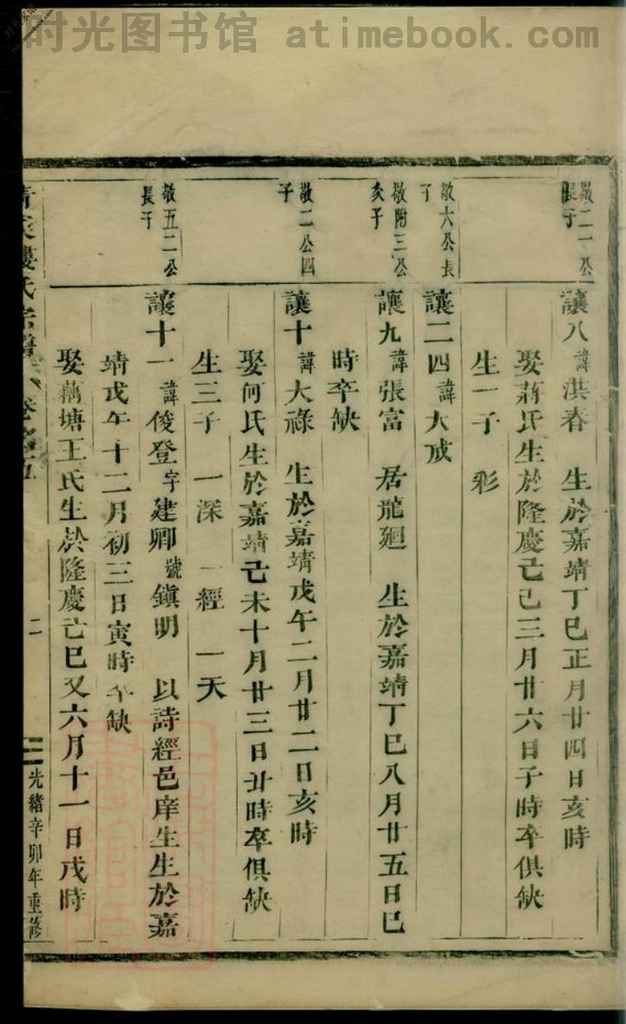 时光图书馆 atimebook.com
敬二一公
長子
讓八諱洪春 生於嘉靖丁巳正月廿四日亥時
娶蔣氏生於隆慶己巳三月廿六日子時卒俱缺
生一子 彩
敬六公長
子
讓二四諱大成
敬附三公
亥子
讓九諱張富 居龍廻 生於嘉靖丁巳八月廿五日巳
時卒缺
敬二公四
子
讓十諱大祿 生於嘉靖戊午二月廿二日亥時
娶何氏生於嘉靖己未十月廿三日丑時卒俱缺
生三子 一深 一經 一天
敬五二公
長子
讓十一諱俊登字建卿號鎮明 以詩經邑庠生生於嘉
靖戊午十二月初三日寅時卒缺
娶藕塘王氏生於隆慶己巳又六月十一日戌時
樓氏宗譜 卷之五 二 光緒辛卯年重修